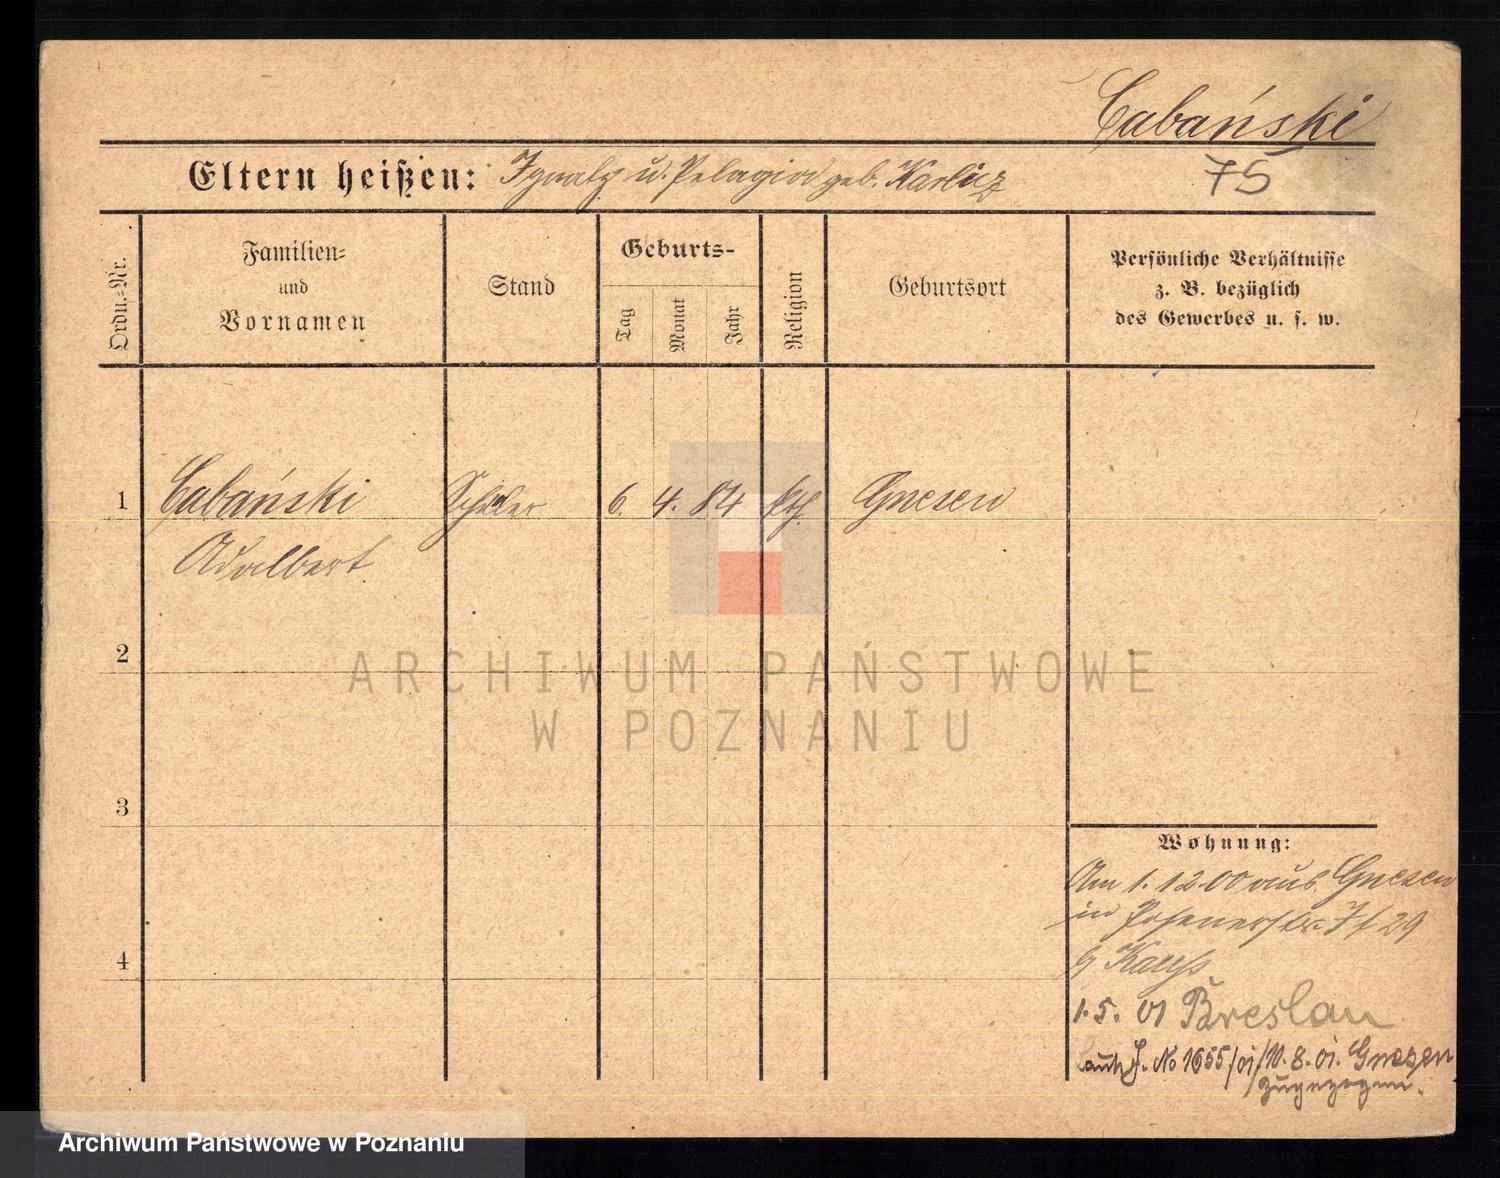 Cabański
75
Eltern heißen: Ignatz u. Pelagia geb. Karlicz
Ordn.=Nr.
Familien=
und
Vornamen
Stand
Geburts-
Tag
Monat
Jahr
Religion
Geburtsort
Persönliche Verhältnisse
z. B. bezüglich
des Gewerbes u. s. w.
1 Cabański Schüler 6. 4. 84 kth Gnesen
Adalbert
2
ARCHIWUM PAŃSTWOWE
W POZNANIU
3
Wohnung:
Am 1. 12.00 aus Gnesen
in Posenerstr. 29
b
4
1. 5. 01 Breslau
J. No 1655/01/10. 8. 01. Gnesen
zugezogen.
Archiwum Państwowe w Poznaniu